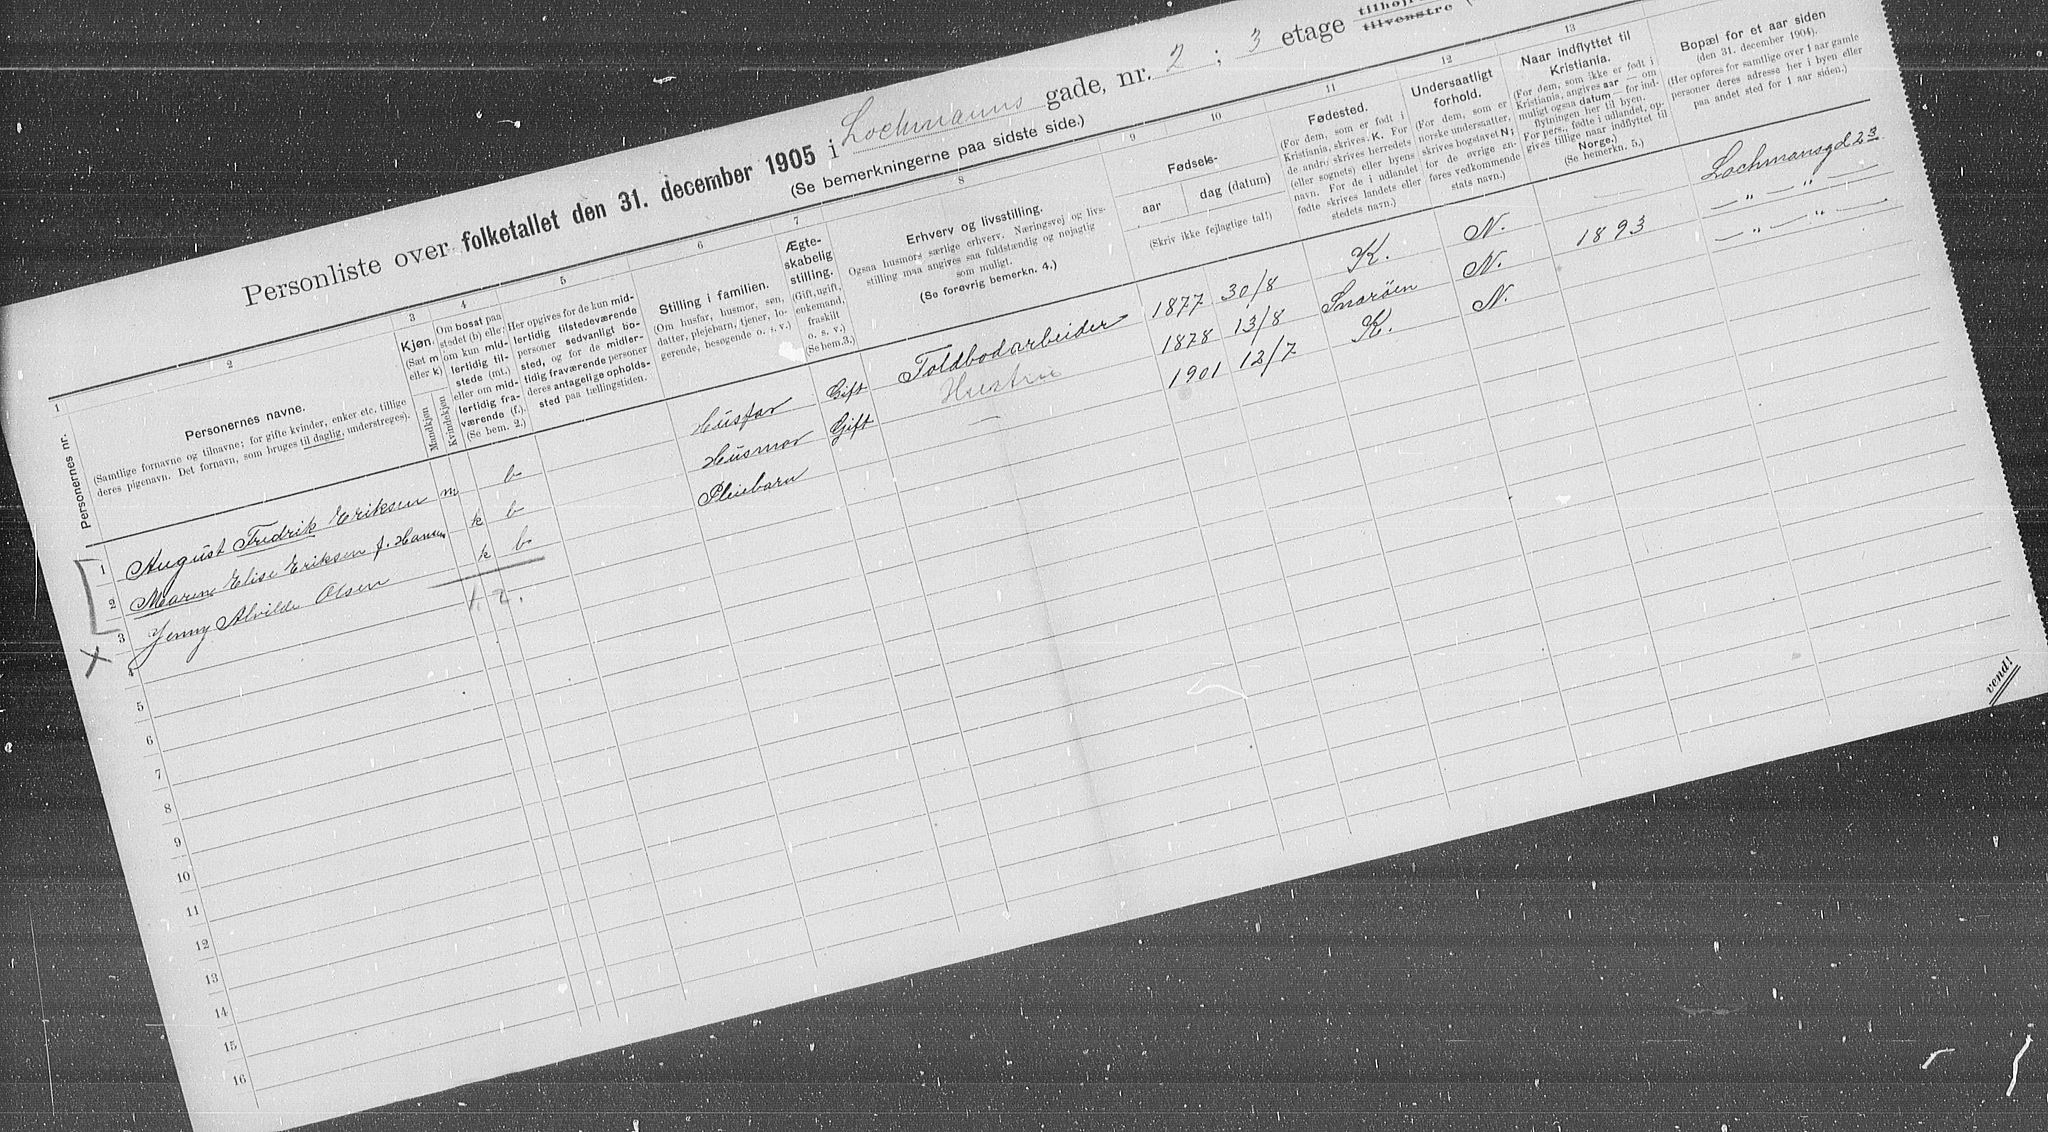 Personliste over folketallet den 31. december 1905 i Lochmanns gade, nr. 2 ; 3 etage tilvenstre
(Se bemerkningerne paa sidste side.)
1 2 3 4 5 6 7 8 9 10 11 12 13
Personernes nr.
Personernes navne.
(Samtlige fornavne og tilnavne; for gifte kvinder, enker etc. tillige
deres pigenavn. Det fornavn, som bruges til daglig, understreges).
Kjøn.
(Sæt m
eller k)
Mandkjøn
Kvindekjøn
Om bosat paa
stedet (b) eller
om kun mid-
lertidig til-
stede (mt.)
eller om mid-
lertidig fra-
værende (f.).
(Se bem. 2.)
Her opgives for de kun mid-
lertidig tilstedeværende
personer sedvanligt bo-
sted, og for de midler-
tidig fraværende personer
deres antagelige opholds-
sted paa tællingstiden.
Stilling i familien.
(Om husfar, husmor, søn,
datter, plejebarn, tjener, lo-
gerende, besøgende o. s. v.)
Ægte-
skabelig
stilling.
(Gift, ugift,
enkemand,
fraskilt
o. s. v.)
(Se bem.3.)
Erhverv og livsstilling.
Ogsaa husmors særlige erhverv. Næringsvej og livs-
stilling maa angives saa fuldstændig og nøjagtig
som muligt.
(Se forøvrig bemerkn. 4.)
Fødsels-
aar
dag (datum)
(Skriv ikke fejlagtige tal!)
Fødested.
(For dem, som er født i
Kristiania, skrives: K. For
de andre skrives herredets
(eller sognets) eller byens
navn. For de i udlandet
fødte skrives landets eller
stedets navn.)
Undersaatligt
forhold.
(For dem, som er
norske undersaatter,
skrives bogstavet N;
for de øvrige an-
føres vedkommende
stats navn.)
Naar indflyttet til
Kristiania.
(For dem, som ikke er født i
Kristiania, angives aar — om
muligt ogsaa datum — for ind-
flytningen her til byen.
For pers., fødte i udlandet, op-
gives tillige naar indflyttet til
Norge.)
(Se bemerkn. 5.)
Bopæl for et aar siden
(den 31. december 1904).
(Her opføres for samtlige over 1 aar gamle
personer deres adresse her i byen eller
paa andet sted for 1 aar siden.)
1 August Fredrik Eriksen m b Husfar Gift Toldbodarbeider 1877 30/8 K. N. — Lochmansgd 2 3
2 Maren Elise Eriksen f. Hansen k b Husmor Gift Hustru 1878 13/8 Snarøen N. 1893 — " — " —
3 Jenny Alvilde Olsen k b Pleiebarn — 1901 12/7 K. N. — " — " —
1. 2.
4
5
6
7
8
9
10
11
12
13
14
15
16
vend!